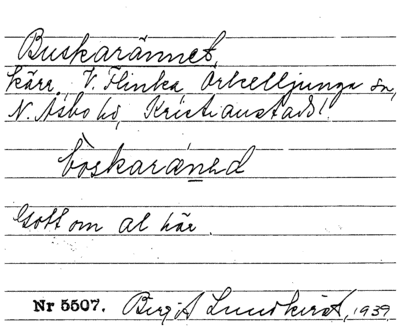 Buskarännet,
kärr, V. Flinka, Örkelljunga sn,
N. Åsbo hd, Kristianstads l.
Gott om al här.
Nr 5507. Birgit Lundkvist, 1939.